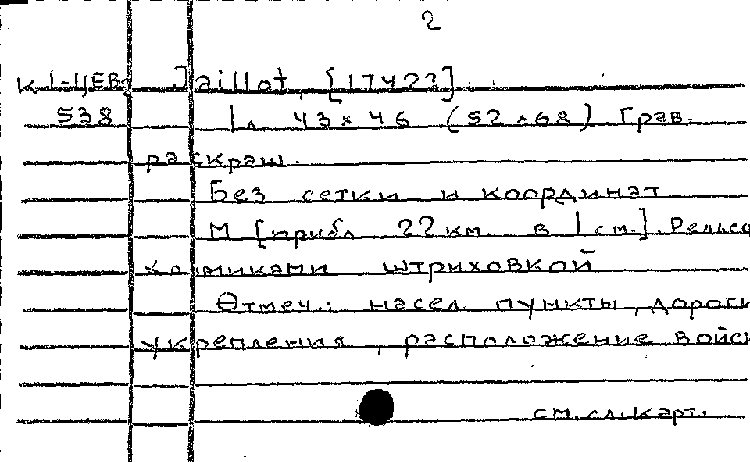 2
К 1-ЦЕВ. Jaillot, [1742?]
538 1 л. 43×46 (52×68) Грав.
раскраш.
Без сетки и координат
М [прибл. 22 км в 1 см.]. Рельеф
холмиками штриховкой
Отмеч.: насел. пункты, дороги
укрепления, расположение войск
см. сл. карт.